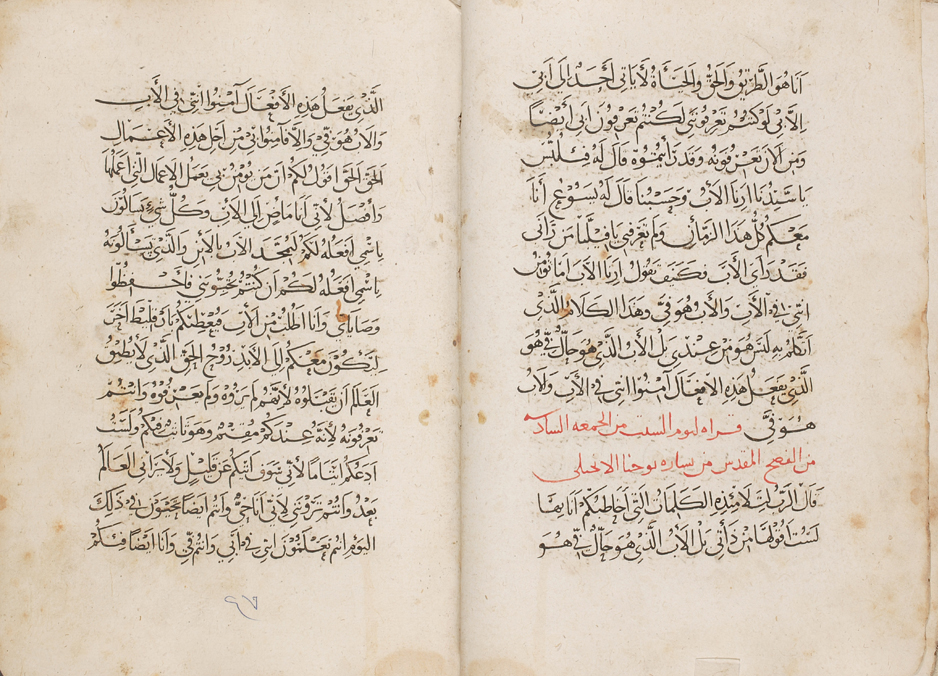 انا هو الطريق والحق والحياة لا ياتي احد الى ابي
الا بي لو كنتم تعرفوني لكنتم تعرفون ابي ايضا
ومن الان تعرفونه وقد رايتموه قال له فيلبس
يا سيدنا ارنا الاب وحسبنا قال له يسوع انا
معكم كل هذا الزمان ولم تعرفني يا فيلبس من راني
فقد راي الاب فكيف تقول ارنا الاب اما تومن
انني في الاب والاب هو في وهذا الكلام الذي
اتكلم به ليس هو من عندي بل الاب الذي هو حال في هو
الذي يفعل هذه الافعال آمنوا انني في الاب والاب
هو في قراه ليوم السبت من الجمعه السادسه
من الفصح المقدس من بساره يوحنا الانجيلي
قال الرب لتلاميذه الكلمات التي اخاطبكم انا بها
لست اقولها من ذاتي بل الاب الذي هو حال في هو
الذي يفعل هذه الافعال آمنوا انني في الاب
والاب هو في والا فامنوا بي من اجل هذه الاعمال
الحق الحق اقول لكم ان من يومن بي يعمل الاعمال التي اعملها
وافضل لاني انا ماض الى الاب وكل شيء تسالون
باسمي افعله لكم ليتمجد الاب بالابن والذي تسالونه
باسمي افعله لكم ان كنتم تحبوني فاحفظوا
وصاياي وانا اطلب من الاب فيعطيكم بارقليط آخر
ليكون معكم الى الابد روح الحق الذي لا يطيق
العالم ان تقبلوه لانهم لم يروه ولم يعرفوه وانتم
تعرفونه لانه عندكم مقيم وهو ثابت فيكم ولست
ادعكم ايتاما لاني سوف اتيكم عن قليل ولا يراني العالم
بعد وانتم تروني لاني انا حي وانتم ايضا تحيون في ذلك
اليوم انتم تعلمون انني في ابي وانتم في وانا ايضا فيكم